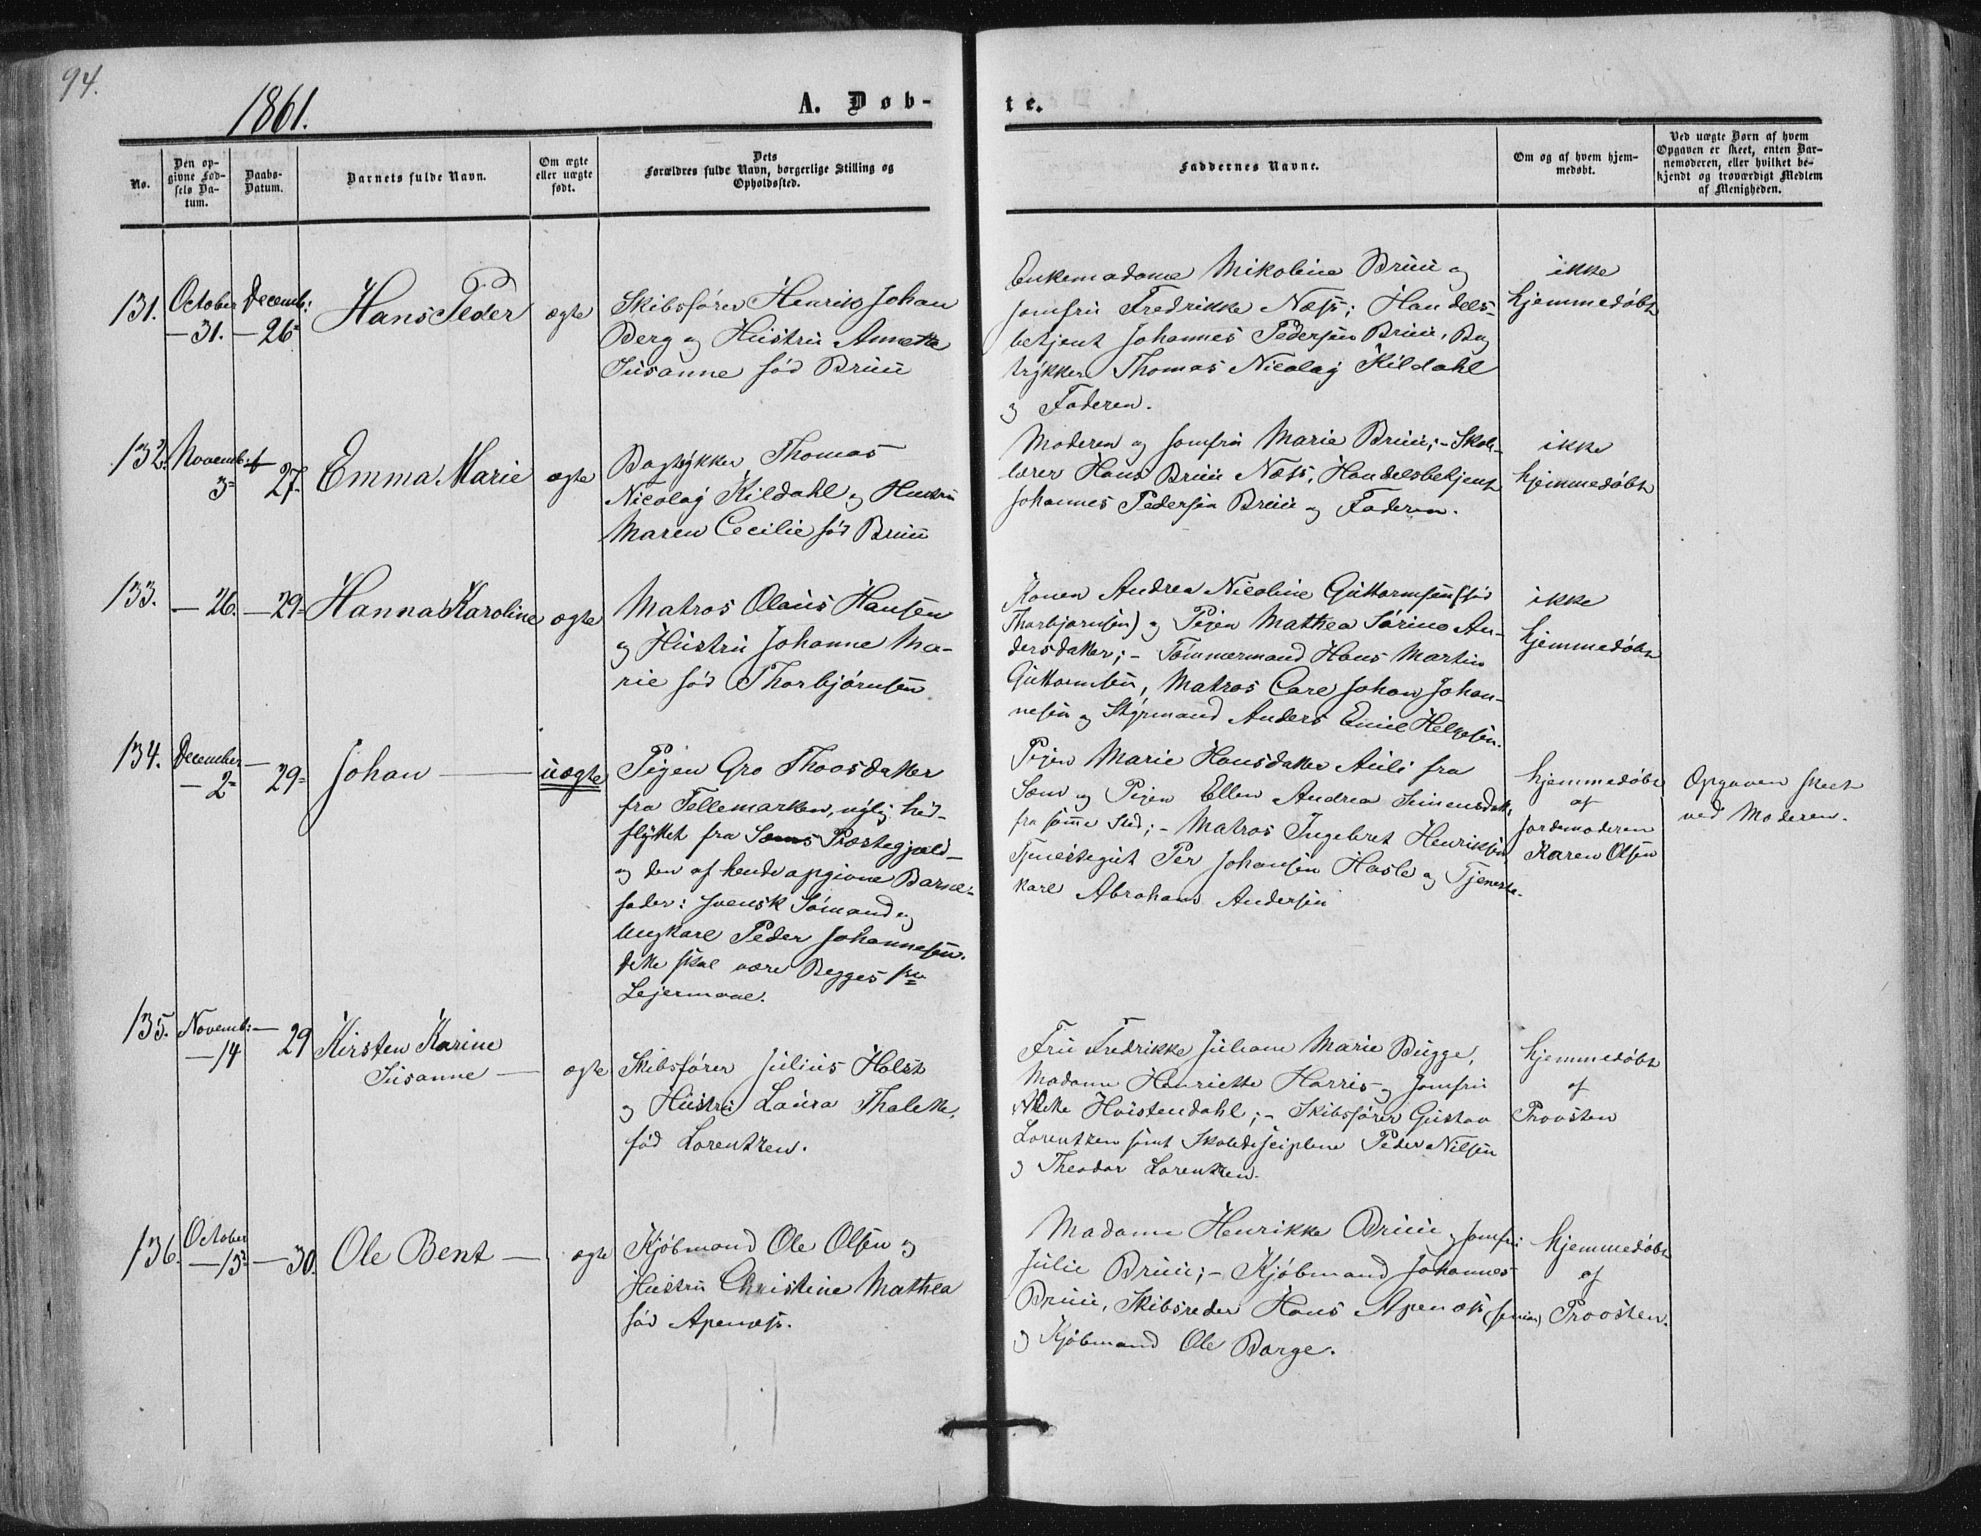 94.
1861.
A. Døb-
te.
No.
Den op-
givne Fød-
sels Da-
tum.
Daabs-
Datum.
Barnets fulde Navn.
Om ægte
eller uægte
født.
Dets
Forældres fulde Navn, borgerlige Stilling og
Opholdssted.
Faddernes Navne.
Om og af hvem hjem-
medøbt.
Ved uægte Børn af hvem
Opgaven er skeet, enten Bar-
nemoderen, eller hvilket be-
kjendt og troværdigt Medlem
af Menigheden.
131.
October
-31.
Decemb:
-26
Hans Peder
ægte
Skibsfører Henrik Johan
Berg og Hustru Annette
Susanne fød Bruu
Enkemadame Nikoline Bruu og
Jomfru Fredrikke Næss; Handels-
betjent Johannes Pedersen Bruu, Bog
trykker Thomas Nicolaj Kildahl
og Faderen.
ikke
hjemmedøbt
132.
Novemb:
3
27
Emma Marie
ægte
Bogtrykker Thomas
Nicolaj Kildahl og Hustru
Maren Cecilie fød Bruu
Moderen og Jomfru Marie Bruu; - Skole-
lærer Hans Bruu Næss, Handelsbetjent
Johannes Pedersen Bruu og Faderen.
ikke
hjemmedøbt
133.
- 26.
- 29
Hanna Karoline
ægte
Matros Olaus Hansen
og Hustru Johanne Ma-
rie fød Thorbjørnsen
Konen Andrea Nicoline Guttormsen (fød
Thorbjørnsen) og Pigen Mathea Sørine An-
dersdatter; - Tømmermand Hans Martin
Guttormsen, Matros Carl Johan Johan-
nesen og Styrmand Anders Emil Helgesen.
ikke
hjemmedøbt
134.
December
- 2
- 29
Johan
uægte
Pigen Gro Thoosdatter
fra Tellemarken, nylig hid-
flyttet fra Sems Præstegjæld
og den af hende opgivne Barne-
fader: svensk Sømand og
Ungkarl Peder Johannesen.
dette skal være Begges 1ste
Lejermaal.
Pigen Marie Hansdatter Auli fra
Sem og Pigen Ellen Andrea Simensdatt.
fra samme Sted; - Matros Ingebret Henriksen
Tjenestegut Per Johansen Hasle og Tjeneste-
karl Abraham Andersen
hjemmedøbt
af
Jordemoderen
Karen Olsen
Opgaven skeet
ved Moderen.
135.
Novemb:
- 14
- 29
Kirsten Karine
Susanne
ægte
Skibsfører Julius Holst
og Hustru Laura Thalette,
fød Lorentzen.
Fru Fredrikke Juliane Marie Bugge,
Madame Henriette Harris og Jomfru
Hvistendahl; - Skibsfører Gustav
Lorentzen samt Skoledisciplene Peder Nilsen
og Theodor Lorentzen.
hjemmedøbt
af
Provsten
136.
October
- 13
- 30.
Ole Bent
ægte
Kjøbmand Ole Olsen og
Hustru Christine Mathea
fød Apenæss.
Madame Henrikke Bruu og Jomfru
Julie Bruu; - Kjøbmand Johannes
Bruu, Skibsreder Hans Apenæss (senior)
og Kjøbmand Ole Borge.
hjemmedøbt
af
Provsten.